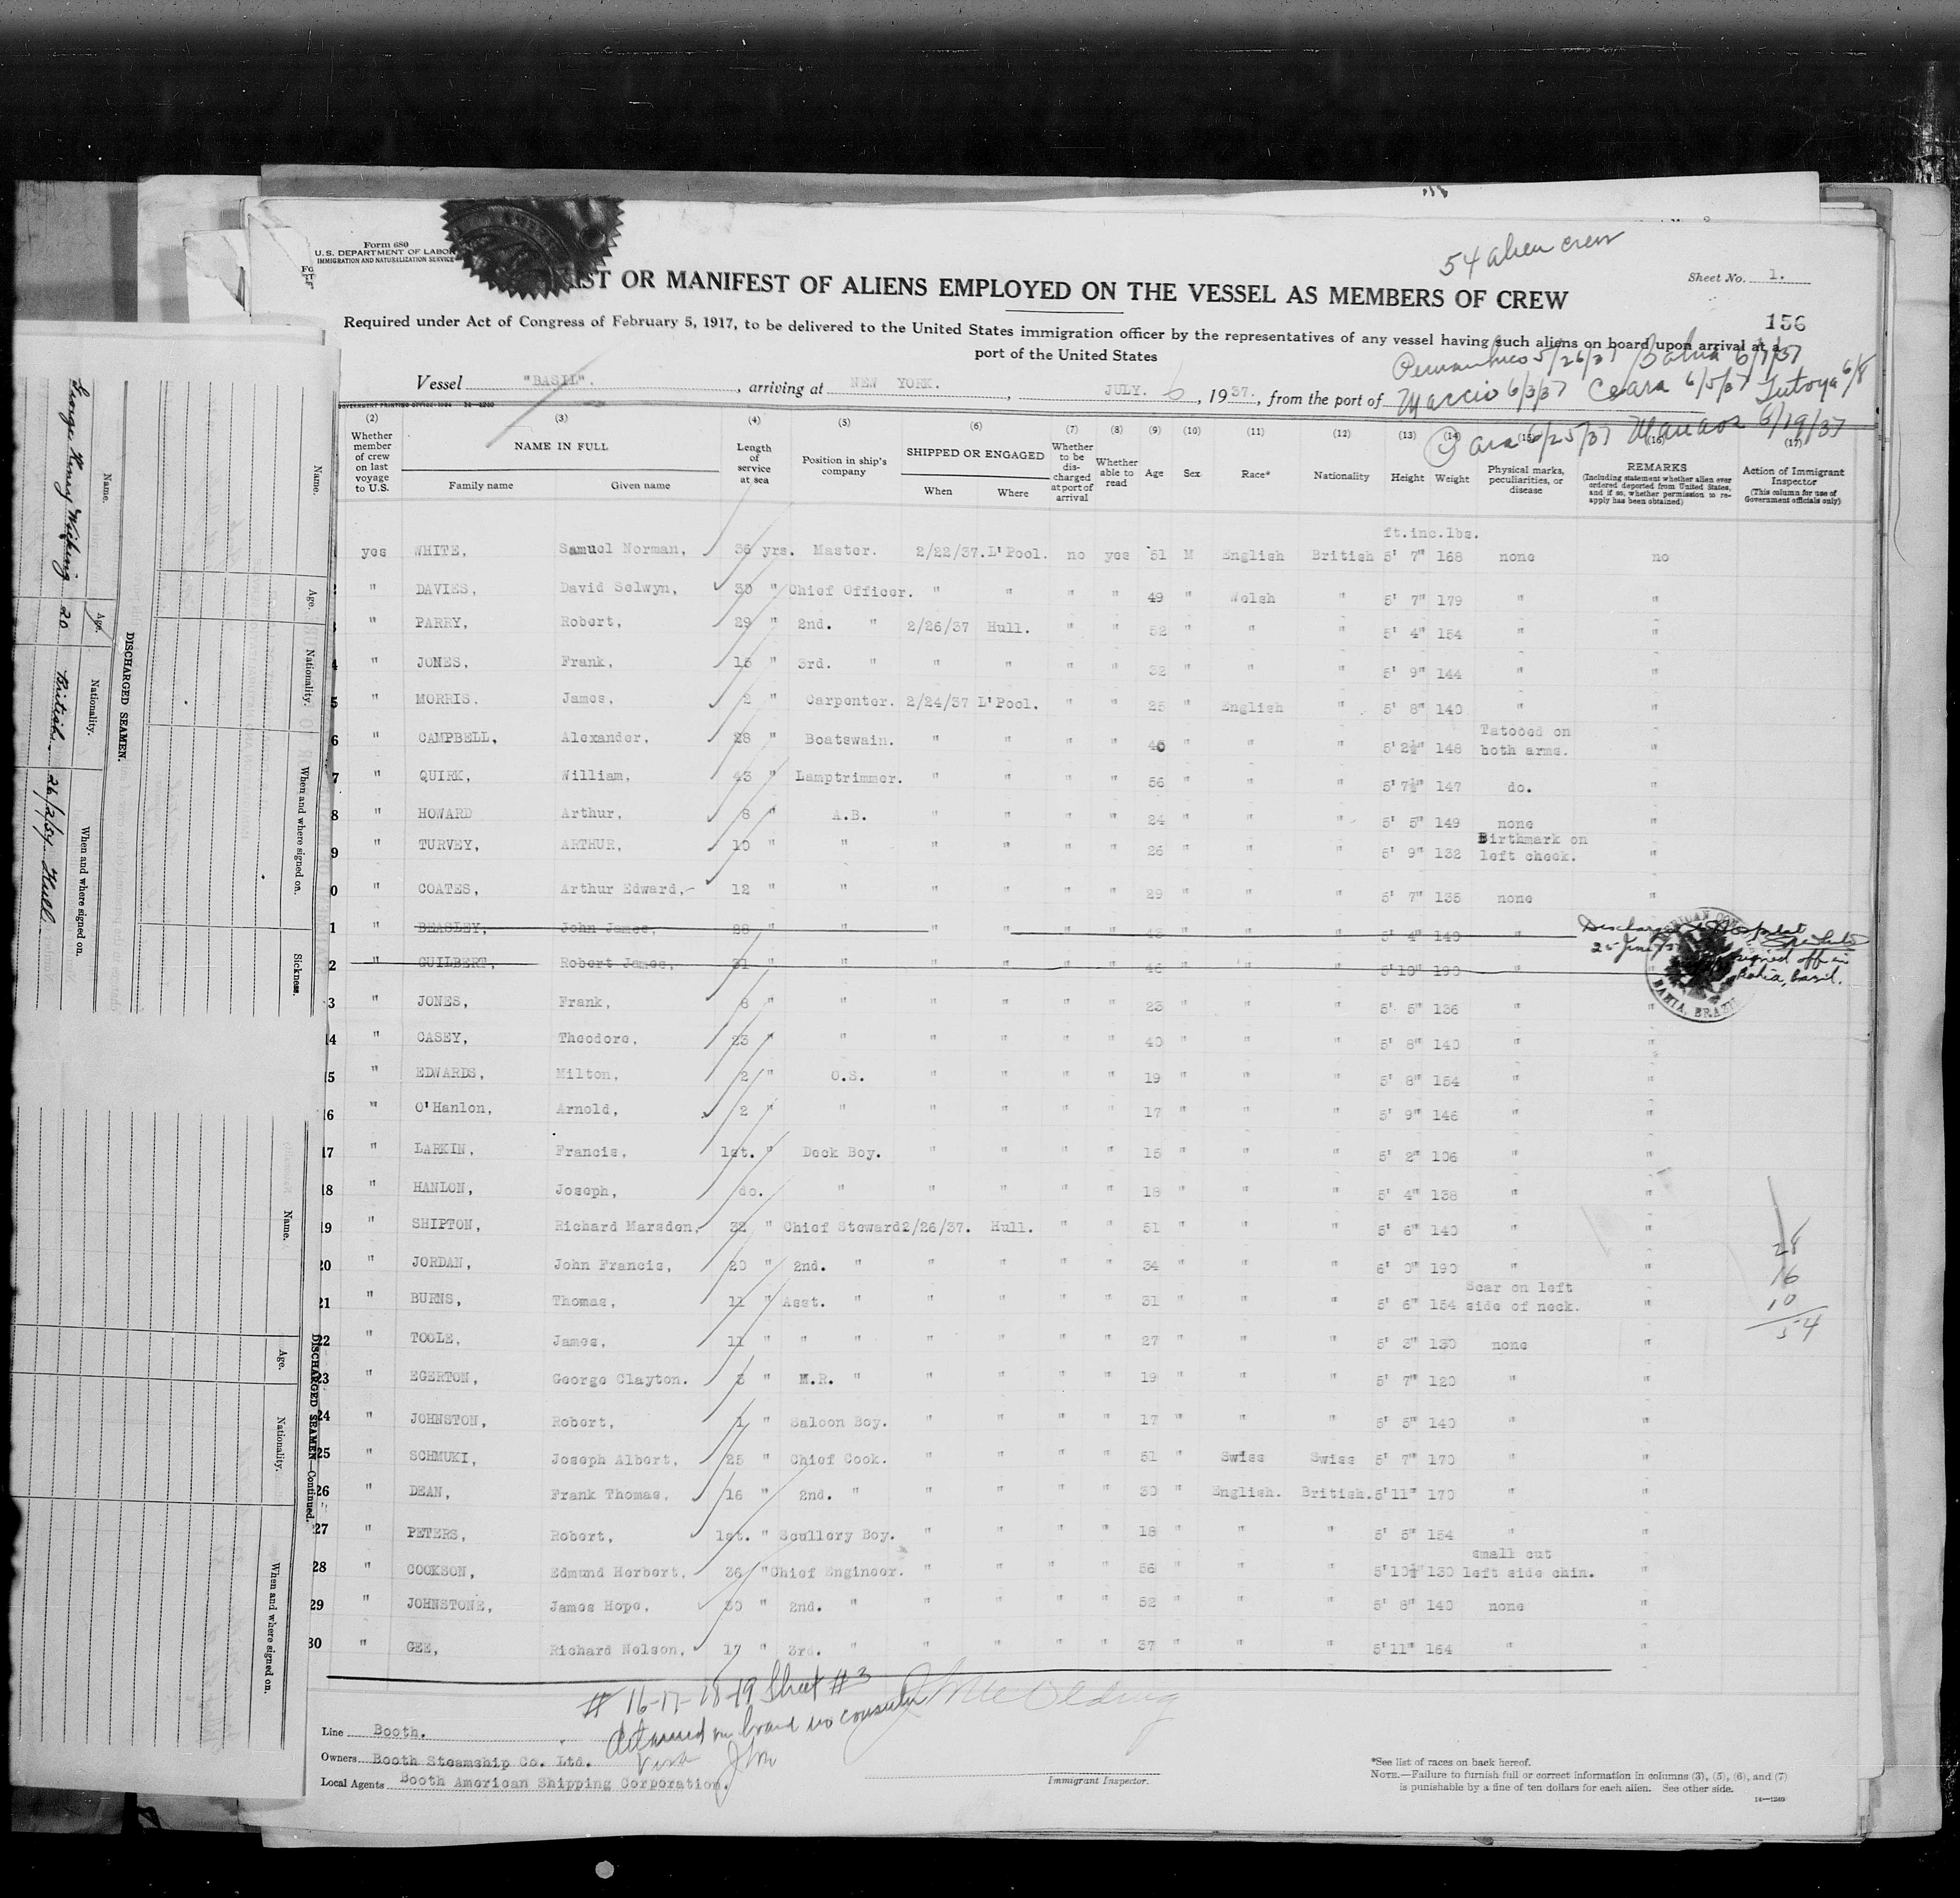 54 alien crew
Form 680
U.S. DEPARTMENT OF LABOR
IMMIGRATION AND NATURALIZATION SERVICE
Sheet No. 1.
IST OR MANIFEST OF ALIENS EMPLOYED ON THE VESSEL AS MEMBERS OF CREW
156
Required under Act of Congress of February 5, 1917, to be delivered to the United States immigration officer by the representatives of any vessel having such aliens on board upon arrival at a
port of the United States
Pernambuco 5/26/37 Bahia 6/1/37
Vessel "BASIL". , arriving at NEW YORK. , JULY. 6 , 1937. , from the port of Maccio 6/3/37 Ceara 6/5/37 Tutoya 6/8
Para 6/25/37 Manaos 6/19/37
(2) (3) (4) (5) (6) (7) (8) (9) (10) (11) (12) (13) (14) (15) (16) (17)
Whether member of crew on last voyage to U.S.
NAME IN FULL
Family name Given name
Length of service at sea
Position in ship's company
SHIPPED OR ENGAGED
When Where
Whether to be discharged at port of arrival
Whether able to read
Age Sex Race* Nationality Height Weight
Physical marks, peculiarities, or disease
REMARKS
(Including statement whether alien ever ordered deported from United States, and if so, whether permission to reapply has been obtained)
Action of Immigrant Inspector
(This column for use of Government officials only)
ft.inc.lbs.
yes WHITE, Samuel Norman, 36 yrs. Master. 2/22/37. L'Pool. no yes 51 M English British 5' 7" 168 none no
" DAVIES, David Selwyn, 30 " Chief Officer. " " " " 49 " Welsh " 5' 7" 179 " "
3 " PARRY, Robert, 29 " 2nd. " 2/26/37 Hull. " " 52 " " " 5' 4" 154 " "
4 " JONES, Frank, 15 " 3rd. " " " " " 32 " " " 5' 9" 144 " "
5 " MORRIS, James, 2 " Carpenter. 2/24/37 L'Pool. " " 25 " English " 5' 8" 140 " "
6 " CAMPBELL, Alexander, 28 " Boatswain. " " " " " " " 5' 2½" 148 Tatooed on both arms. "
7 " QUIRK, William, 43 " Lamptrimmer. " " " " 56 " " " 5' 7½" 147 do. "
8 " HOWARD Arthur, 8 " A.B. " " " " 24 " " " 5' 5" 149 none "
9 " TURVEY, ARTHUR, 10 " " " " " " 26 " " " 5' 9" 132 Birthmark on left cheek. "
0 " COATES, Arthur Edward, 12 " " " " " " 29 " " " 5' 7" 135 none "
1 " BEASLEY, John James, 28 " " " " " " " " " 5' 4" 140
Discharged Hospital
2 " GUILBERT, Robert James, 31 " " " " " " 46 " " " 5'10" 190 "
signed off in
Bahia, Basil.
BAHIA, BRAZIL
3 " JONES, Frank, 8 " " " " " " 23 " " " 5' 5" 136 " "
14 " CASEY, Theodore, 23 " " " " " " 40 " " " 5' 8" 140 " "
15 " EDWARDS, Milton, 2 " O.S. " " " " 19 " " " 5' 8" 154 " "
16 " O'Hanlon, Arnold, 2 " " " " " " 17 " " " 5' 9" 146 " "
17 " LARKIN, Francis, 1st. " Deck Boy. " " " " 15 " " " 5' 2" 106 " "
18 " HANLON, Joseph, do. " " " " " 18 " " " 5' 4" 138 " "
19 " SHIPTON, Richard Marsden, 32 " Chief Steward 2/26/37. Hull. " " 51 " " " 5' 6" 140 "
20 " JORDAN, John Francis, 20 " 2nd. " " " " " 34 " " " 6' 0" 190 " "
21 " BURNS, Thomas, 11 " Asst. " " " " " 31 " " " 5' 6" 154 Scar on left side of neck. "
22 " TOOLE, James, 11 " " " " " " " 27 " " " 5' 3" 130 none "
23 " EGERTON, George Clayton. 3 " M.R. " " " " " 19 " " " 5' 7" 120 " "
24 " JOHNSTON, Robert, 1 " Saloon Boy. " " " " 17 " " " 5' 5" 140 " "
25 " SCHMUKI, Joseph Albert, 25 " Chief Cook. " " " " 51 " Swiss Swiss 5' 7" 170 " "
26 " DEAN, Frank Thomas, 16 " 2nd. " " " " " 30 " English. British. 5'11" 170 " "
27 " PETERS, Robert, 1st. " Scullery Boy. " " " " 18 " " " 5' 5" 154 " "
28 " COOKSON, Edmund Herbert, 36 " Chief Engineer. " " " " 56 " " " 5'10½" 130 small cut left side chin. "
29 " JOHNSTONE, James Hope, 30 " 2nd. " " " " " 52 " " " 5' 8" 140 none "
30 " GEE, Richard Nelson, 17 " 3rd. " " " " " 37 " " " 5'11" 164 " "
28
16
10
54
# 16-17-18-19 Sheet #3
detained on board no consular
visa
Line Booth.
Owners Booth Steamship Co. Ltd.
Local Agents Booth American Shipping Corporation.
Immigrant Inspector.
*See list of races on back hereof.
NOTE.—Failure to furnish full or correct information in columns (3), (5), (6), and (7)
is punishable by a fine of ten dollars for each alien. See other side.
14—1240
DISCHARGED SEAMEN.
Name. Age. Nationality. When and where signed on.
George Henry 20 British Hull
Name. Age. Nationality. When and where signed on. Sickness.
DISCHARGED SEAMEN—Continued.
Name. Age. Nationality. When and where signed on.